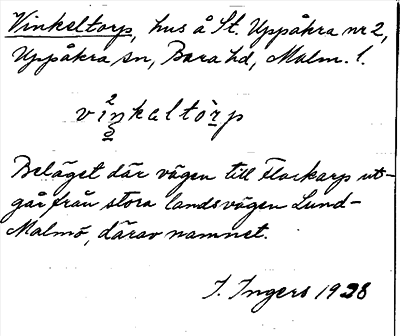 Vinkeltorp, hus å St. Uppåkra nr 2,
Uppåkra sn, Bara hd, Malm. l.
vinkaltorp
Beläget där vägen till Flackarp ut-
går från stora landsvägen Lund-
Malmö, därav namnet.
I. Ingers 1928